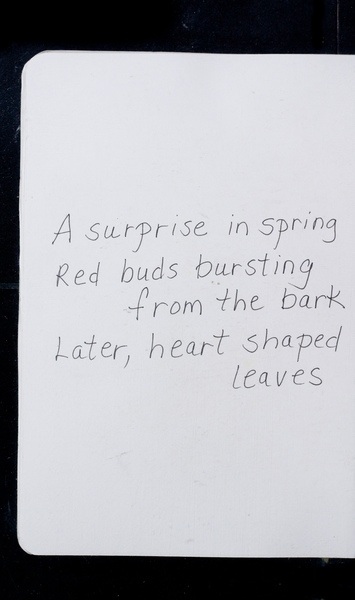 A surprise in spring
Red buds bursting
from the bark
Later, heart shaped
leaves